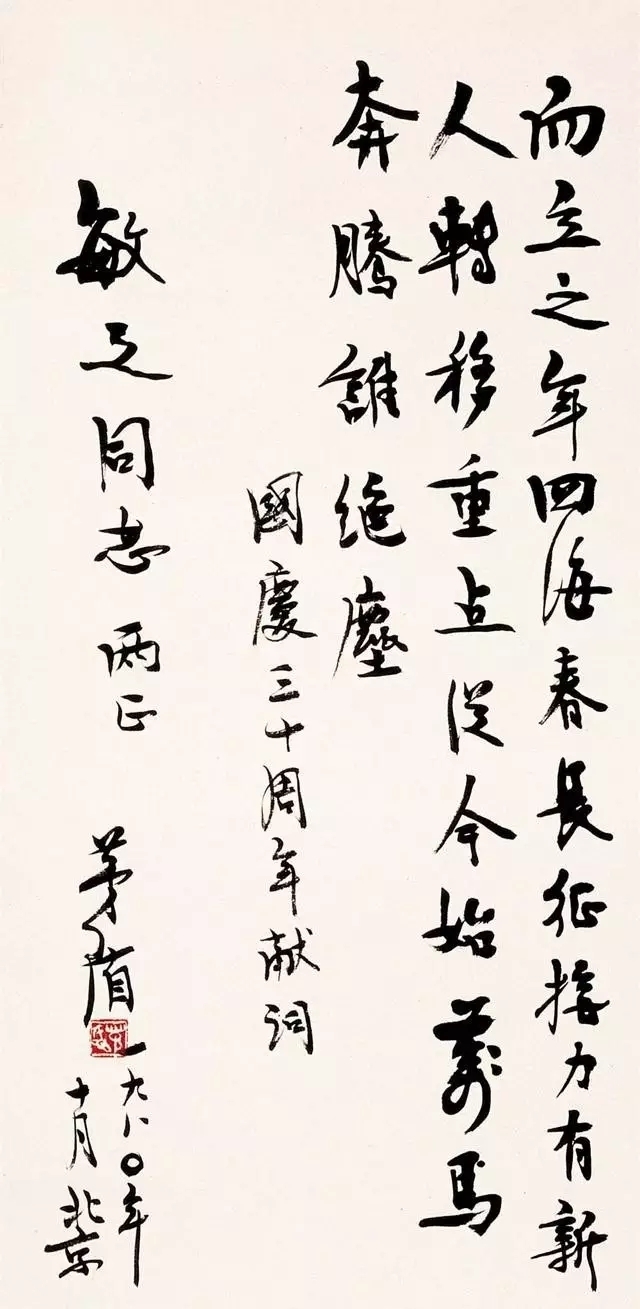 而立之年四海春长征接力有新
人轉移重点從今始萬馬
奔騰誰绝塵
國慶三十周年献词
敏之同志两正
茅盾
一九八〇年
十月北京